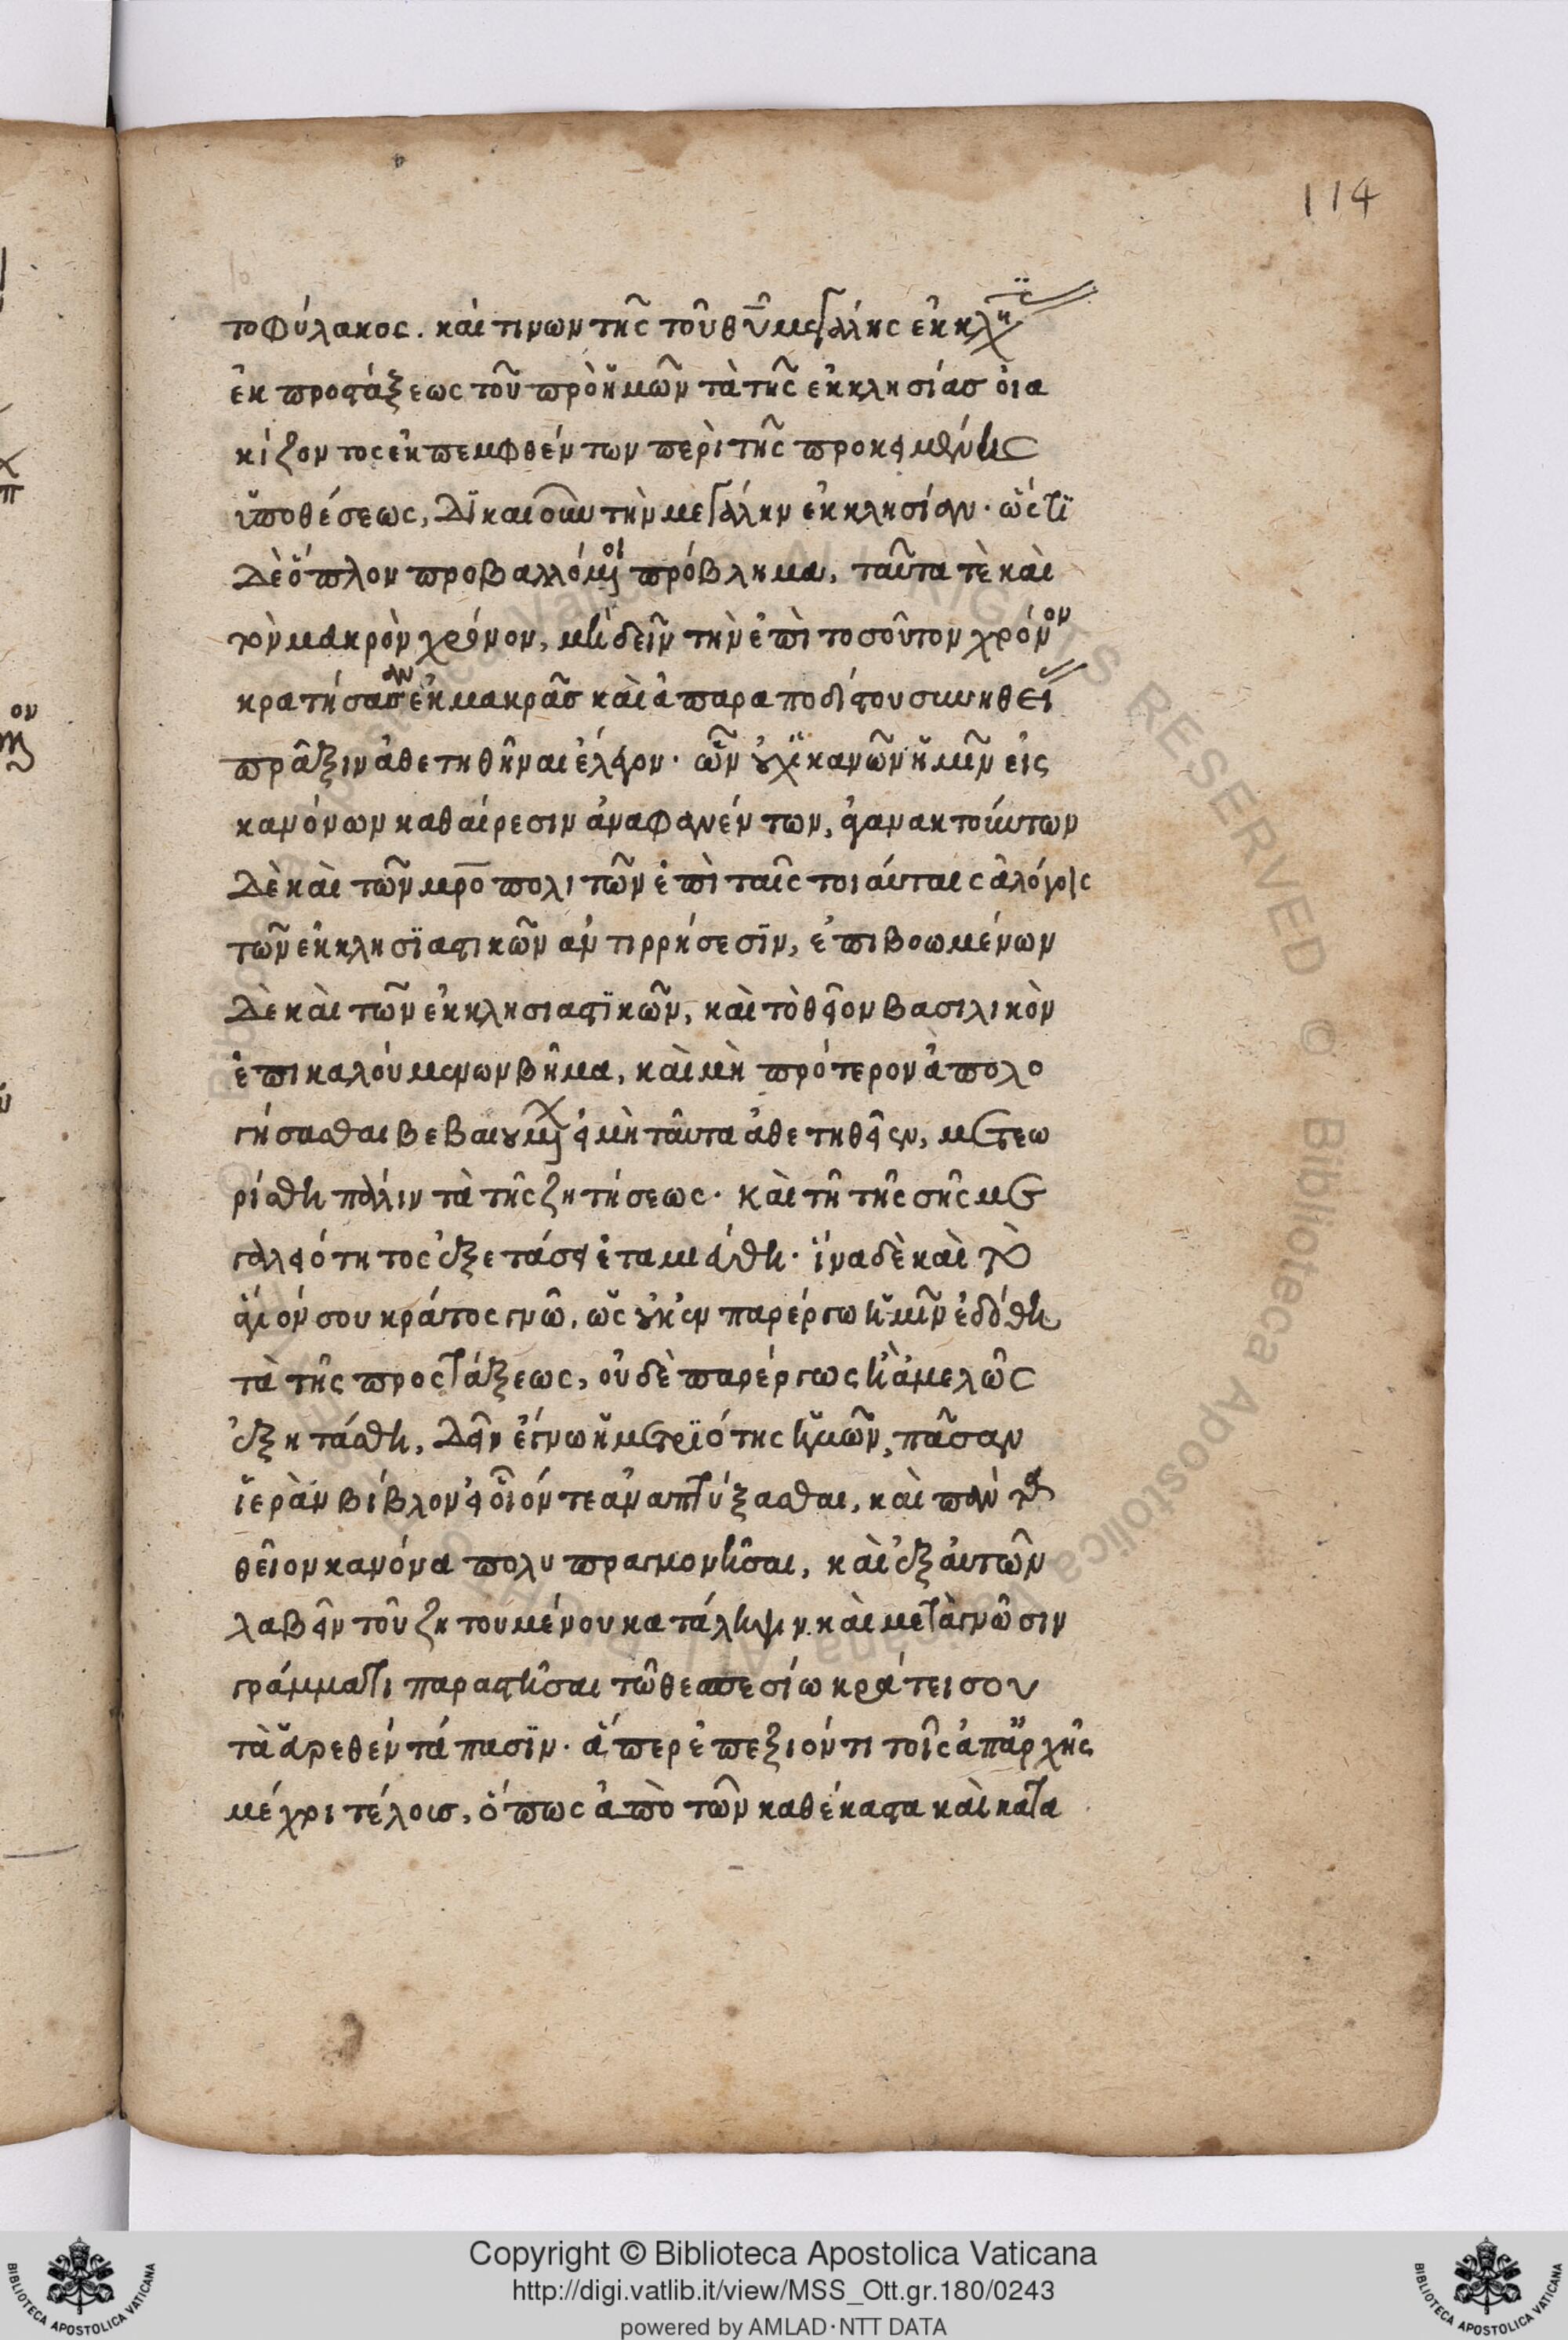 114
τοφύλακος. καὶ τινων τῆς τοῦ θῦ μεγάλης ἐκκλη
ἐκ προστάξεως τοῦ πρὸ ἡμῶν τὰ τῆς ἐκκλησίας οἰα
κίζοντος ἐκπεμφθέντων περὶ τῆς προκειμένης
ὑποθέσεως, δικαιοῦν τὴν μεγάλην ἐκκλησίαν. ὥς τι
δὲ ὅπλον προβαλλόμενοι πρόβλημα, ταῦτα τὲ καὶ
τὸν μακρὸν χρόνον, μὴ δεῖν τὴν ἐπὶ τοσοῦτον χρόνον
κρατήσασαν ἐκ μακρᾶς καὶ ἀπαραποδίστου συνηθεί
πρᾶξιν ἀθετηθῆναι ἔλεγον. ὧν οὐχ ἱκανῶν ἡμῖν εἰς
κανόνων καθαίρεσιν ἀναφανέντων, ἀγανακτούντων
δὲ καὶ τῶν μροπολιτῶν ἐπὶ ταῖς τοιαύταις ἀλόγοις
τῶν ἐκκλησϊαστικῶν ἀντιρρήσεσϊν, ἐπιβοωμένων
δὲ καὶ τῶν ἐκκλησιαστϊκῶν, καὶ τὸ θεῖον βασιλικὸν
ἐπικαλούμενων βῆμα, καὶ μὴ πρότερον ἀπολο
γήσασθαι βεβαιουμένων εἰ μὴ ταῦτα ἀθετηθεῖεν, μετεω
ρίσθη πάλιν τὰ τῆς ζητήσεως. καὶ τῆ τῆς σῆς με
γαλειότητος ἐξετάσει ἐταμιεύθη. ἵνα δὲ καὶ τὸ
ἅγιόν σου κράτος γνῶ, ὡς οὐκ ἐν παρέργω ἡμῖν ἐδόθη
τὰ τῆς προστάξεως, οὐδὲ παρέργως ἢ ἀμελῶς
ἐξητάσθη, δεῖν ἔγνω ἡ μετρϊότης ἡμῶν, πᾶσαν
ἱερὰν βίβλον εἰ οἷόν τε ἀναπτύξασθαι, καὶ πάντα
θεῖον κανόνα πολυπραγμονῆσαι, καὶ ἐξ αὐτῶν
λαβεῖν τοῦ ζητουμένου κατάληψιν. καὶ μετὰ γνῶσιν
γράμματι παραστῆσαι τῶ θεσπεσίω κράτει σου
τὰ εὑρεθέντά πασϊν. ἅπερ ἐπεξιόντι τοῖς ἀπαρχῆς
μέχρι τέλους, ὅπως ἀπὸ τῶν καθέκαστα καὶ κατα
Copyright © Biblioteca Apostolica Vaticana
http://digi.vatlib.it/view/MSS_Ott.gr.180/0243
powered by AMLAD·NTT DATA